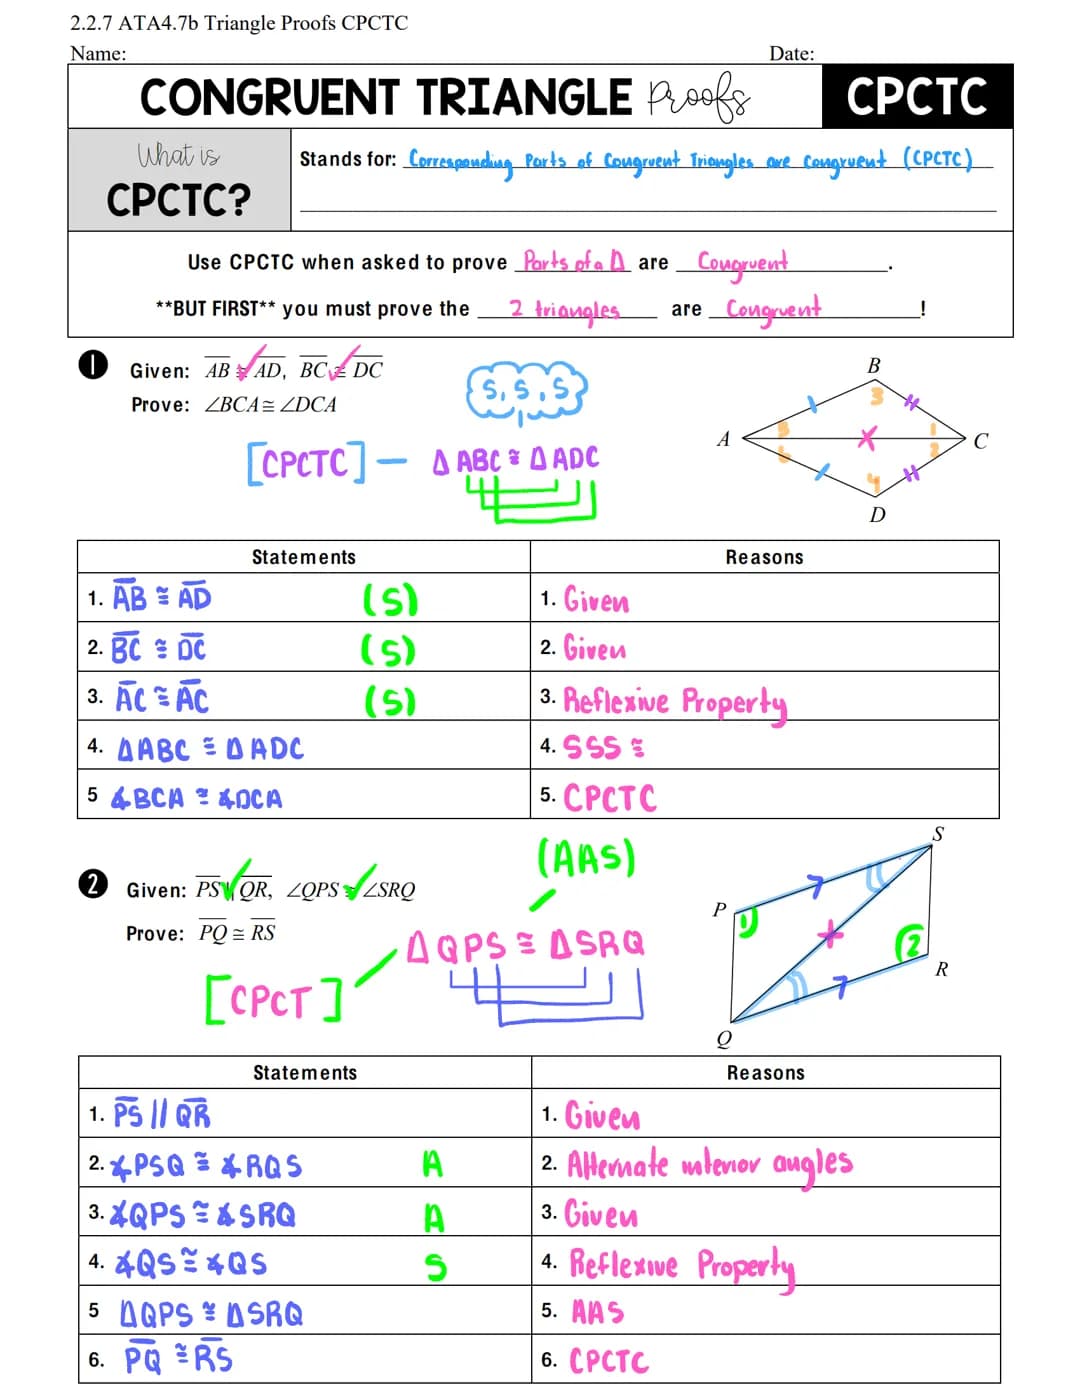 2.2.7 ATA4.7b Triangle Proofs CPCTC
Name: Date:
CONGRUENT TRIANGLE Proofs CPCTC
What is
CPCTC?
Stands for: Corresponding Parts of Congruent Triangles are Congruent (CPCTC)
Use CPCTC when asked to prove Parts of a Δ are Congruent.
**BUT FIRST** you must prove the 2 triangles are Congruent!
1 Given: AB ≅ AD, BC ≅ DC
Prove: ∠BCA ≅ ∠DCA
S, S, S
[CPCTC] — Δ ABC ≅ Δ ADC
B
3
A 5 1 C
6 2
4
D
Statements Reasons
1. AB ≅ AD (S) 1. Given
2. BC ≅ DC (S) 2. Given
3. AC ≅ AC (S) 3. Reflexive Property
4. ΔABC ≅ ΔADC 4. SSS ≅
5 ∡BCA ≅ ∡DCA 5. CPCTC
(AAS)
2 Given: PS ∥ QR, ∠QPS ≅ ∠SRQ
Prove: PQ ≅ RS
ΔQPS ≅ ΔSRQ
[CPCT]
S
P 1
2
R
Q
Statements Reasons
1. PS // QR 1. Given
2. ∡PSQ ≅ ∡RQS A 2. Alternate interior angles
3. ∡QPS ≅ ∡SRQ A 3. Given
4. ∡QS ≅ ∡QS S 4. Reflexive Property
5 ΔQPS ≅ ΔSRQ 5. AAS
6. PQ ≅ RS 6. CPCTC